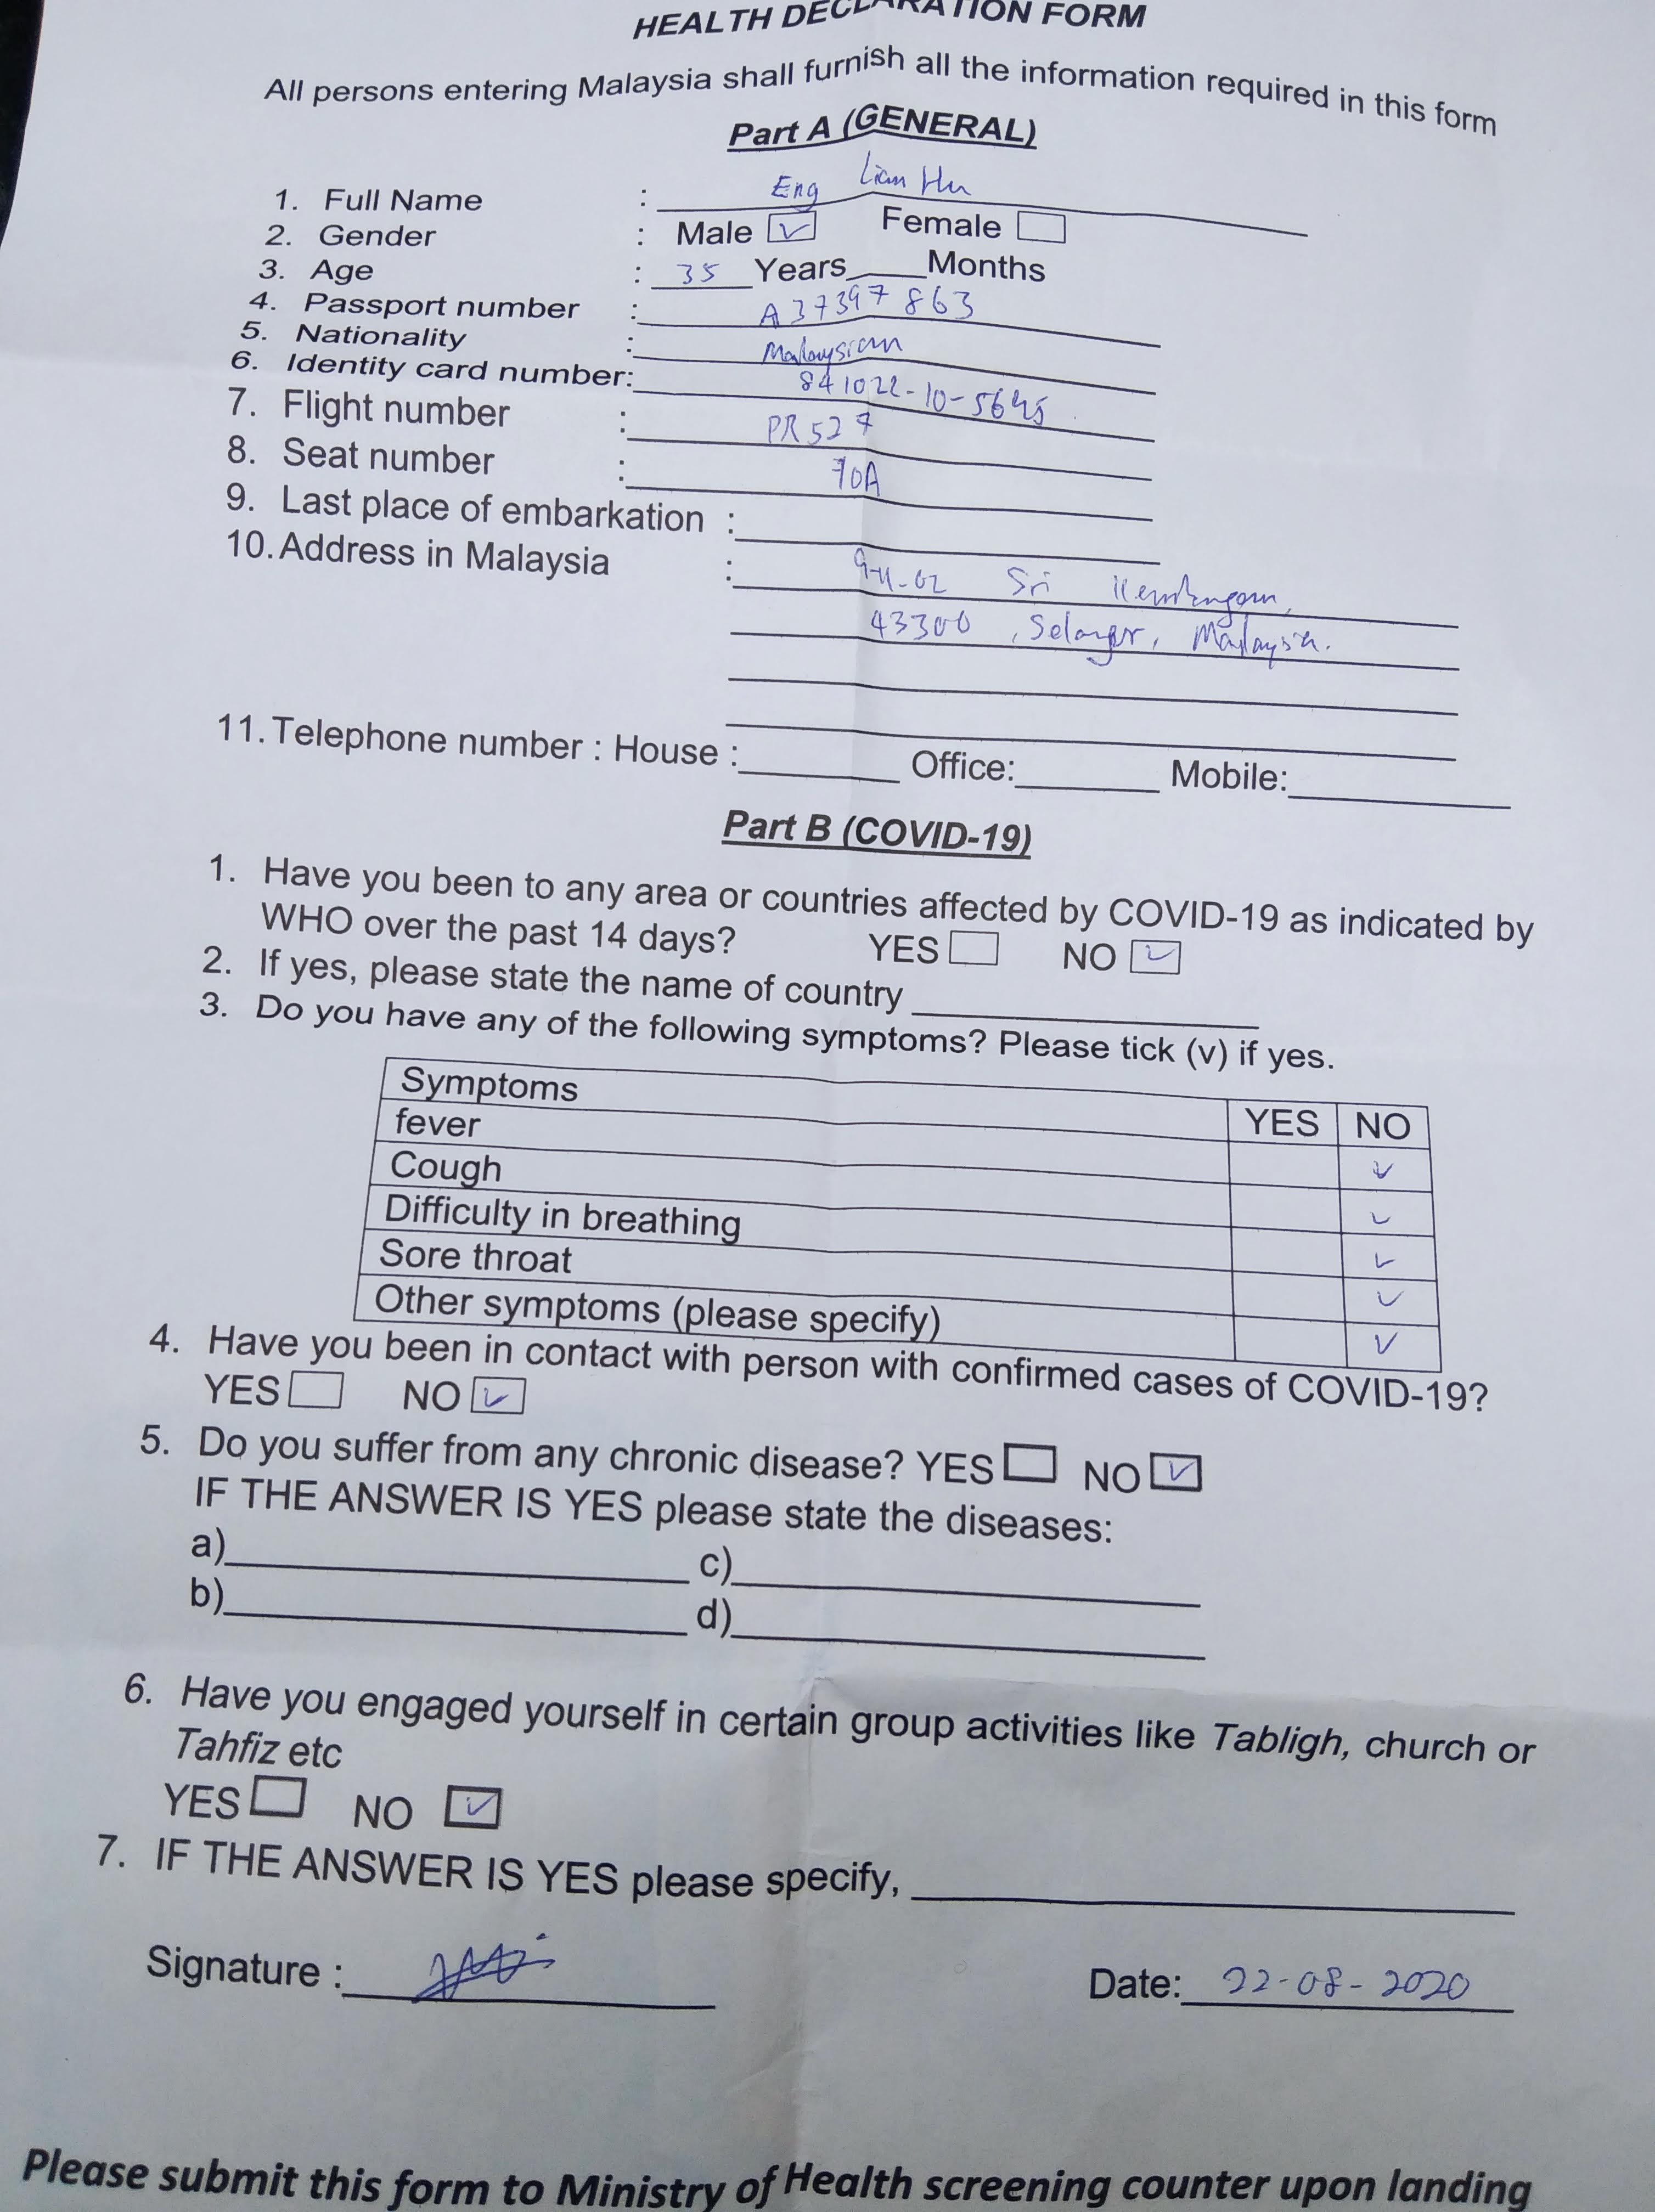 HEALTH DECLARATION FORM
All persons entering Malaysia shall furnish all the information required in this form
Part A (GENERAL)
1. Full Name : Eng Lian Hu
2. Gender : Male ☑ Female ☐
3. Age : 35 Years ___ Months
4. Passport number : A37397863
5. Nationality : Malaysian
6. Identity card number: 841022-10-5645
7. Flight number : PR527
8. Seat number : 70A
9. Last place of embarkation :
10. Address in Malaysia : 9-11-02 Sri
43300, Selangor, Malaysia.
11. Telephone number : House : Office: Mobile:
Part B (COVID-19)
1. Have you been to any area or countries affected by COVID-19 as indicated by
WHO over the past 14 days? YES ☐ NO ☑
2. If yes, please state the name of country
3. Do you have any of the following symptoms? Please tick (v) if yes.
Symptoms YES NO
fever ✓
Cough ✓
Difficulty in breathing ✓
Sore throat ✓
Other symptoms (please specify) ✓
4. Have you been in contact with person with confirmed cases of COVID-19?
YES ☐ NO ☑
5. Do you suffer from any chronic disease? YES ☐ NO ☑
IF THE ANSWER IS YES please state the diseases:
a) c)
b) d)
6. Have you engaged yourself in certain group activities like Tabligh, church or
Tahfiz etc
YES ☐ NO ☑
7. IF THE ANSWER IS YES please specify,
Signature : Date: 22-08-2020
Please submit this form to Ministry of Health screening counter upon landing